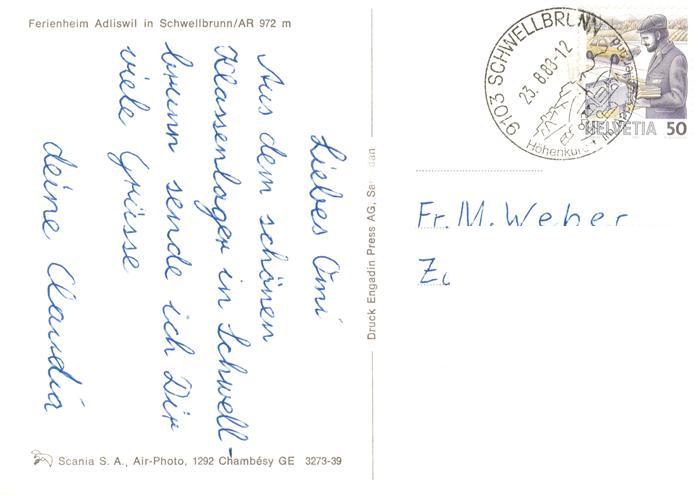 Ferienheim Adliswil in Schwellbrunn/AR 972 m
Liebes Omi
Aus dem schönen
Klassenlager in Schwell-
brunn sende ich Dir
viele Grüsse
deine Claudia
Scania S. A., Air-Photo, 1292 Chambésy GE 3273-39
Druck Engadin Press AG,
9103 SCHWELLBRUNN
23.8.88-12
HELVETIA 50
Fr. M. Weber